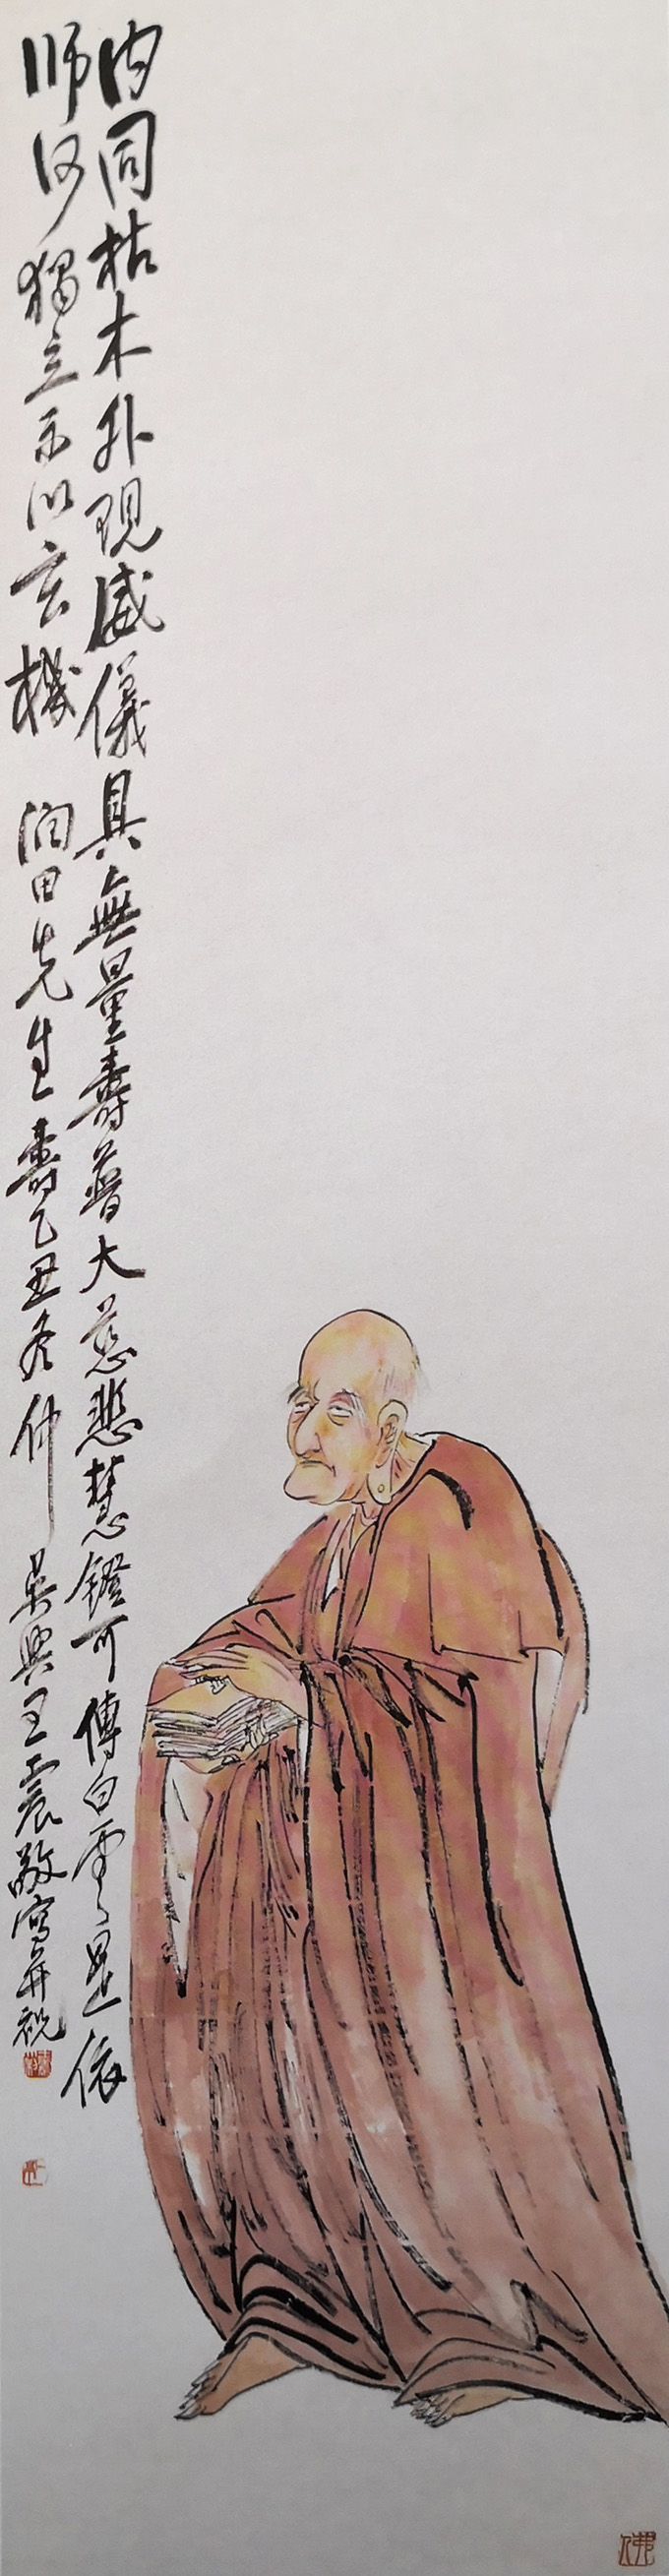 内同枯木外現威儀具無量壽普大慈悲慧鐙可傳白雲是依
师何獨立示以玄機 润田先生壽乙丑冬仲 吴興王震敬寫并祝